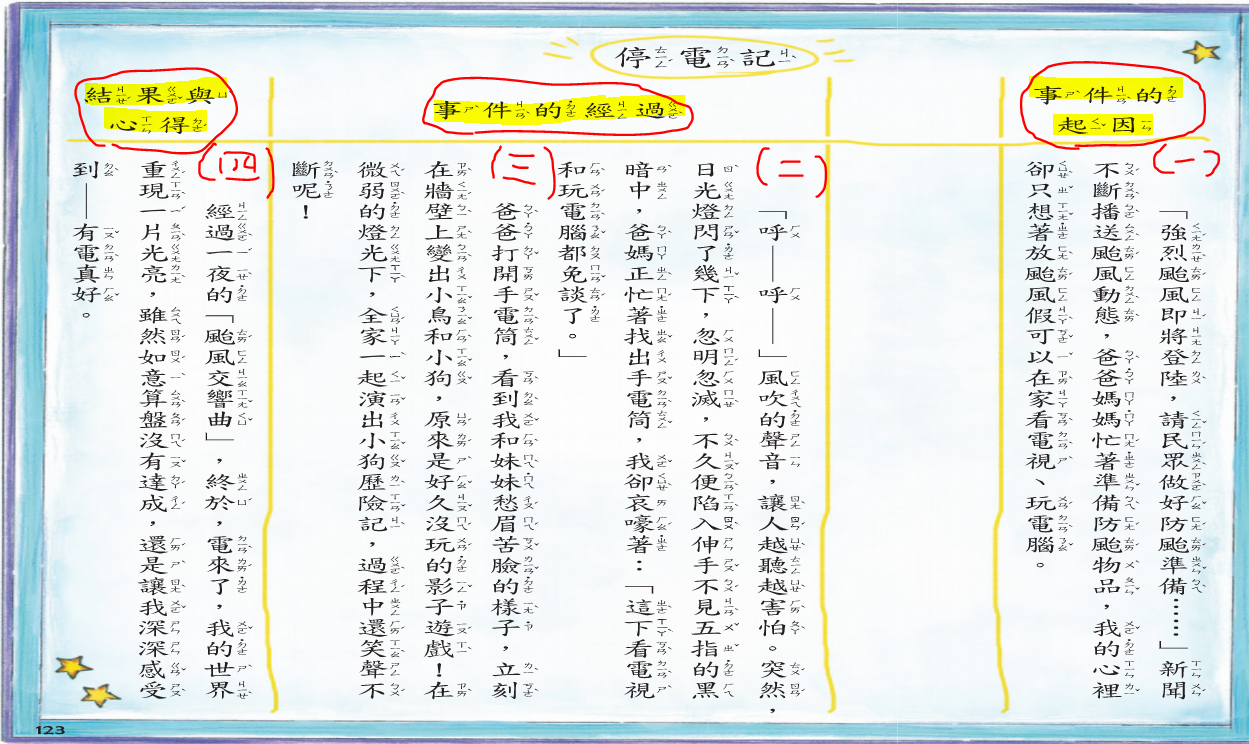 停電記
事件的
起因
(一)
「強烈颱風即將登陸，請民眾做好防颱準備……」新聞
不斷播送颱風動態，爸爸媽媽忙著準備防颱物品，我的心裡
卻只想著放颱風假可以在家看電視、玩電腦。
事件的經過
(二)
「呼——呼——」風吹的聲音，讓人越聽越害怕。突然，
日光燈閃了幾下，忽明忽滅，不久便陷入伸手不見五指的黑
暗中，爸媽正忙著找出手電筒，我卻哀嚎著：「這下看電視
和玩電腦都免談了。」
(三)
爸爸打開手電筒，看到我和妹妹愁眉苦臉的樣子，立刻
在牆壁上變出小鳥和小狗，原來是好久沒玩的影子遊戲！在
微弱的燈光下，全家一起演出小狗歷險記，過程中還笑聲不
斷呢！
結果與
心得
(四)
經過一夜的「颱風交響曲」，終於，電來了，我的世界
重現一片光亮，雖然如意算盤沒有達成，還是讓我深深感受
到——有電真好。
123